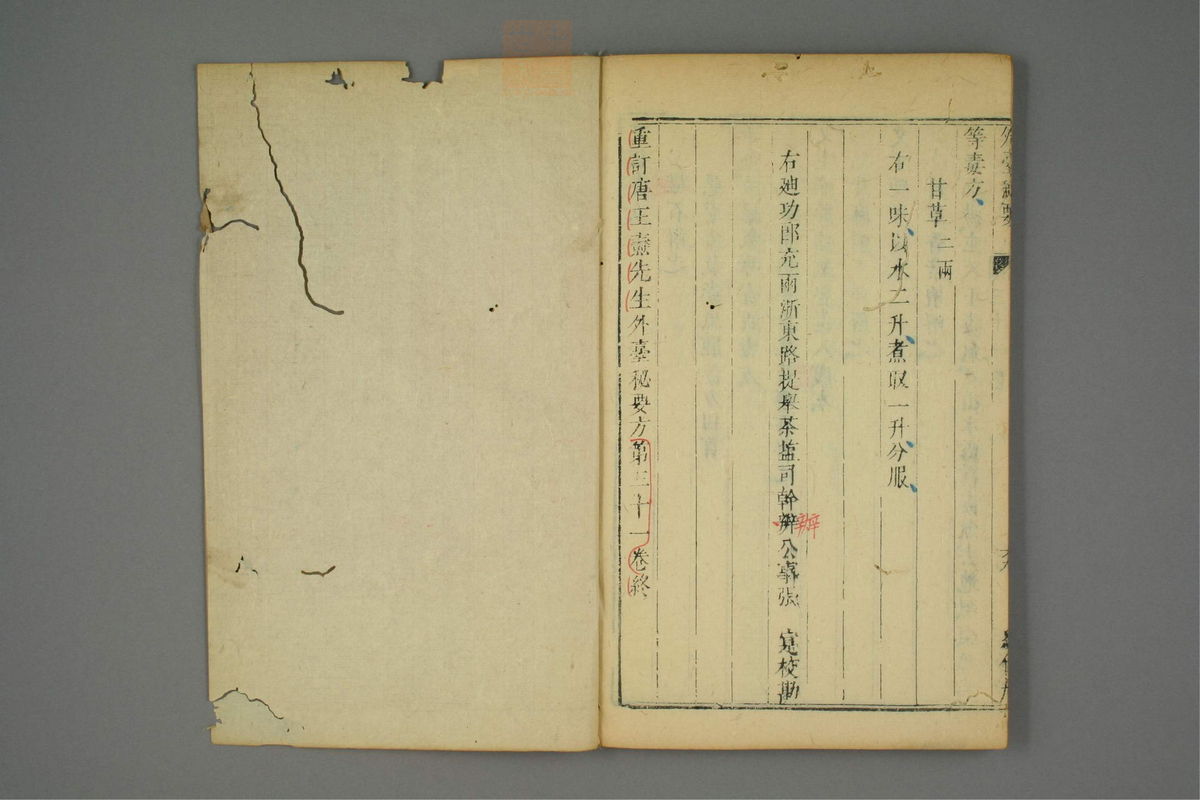 等毒方
甘草二兩
右一味以水二升煮取一升分服
右迪功郎充兩浙東路提舉茶塩司幹辦公事張 寔校勘
辨
重訂唐王燾先生外臺秘要方第三十一卷終